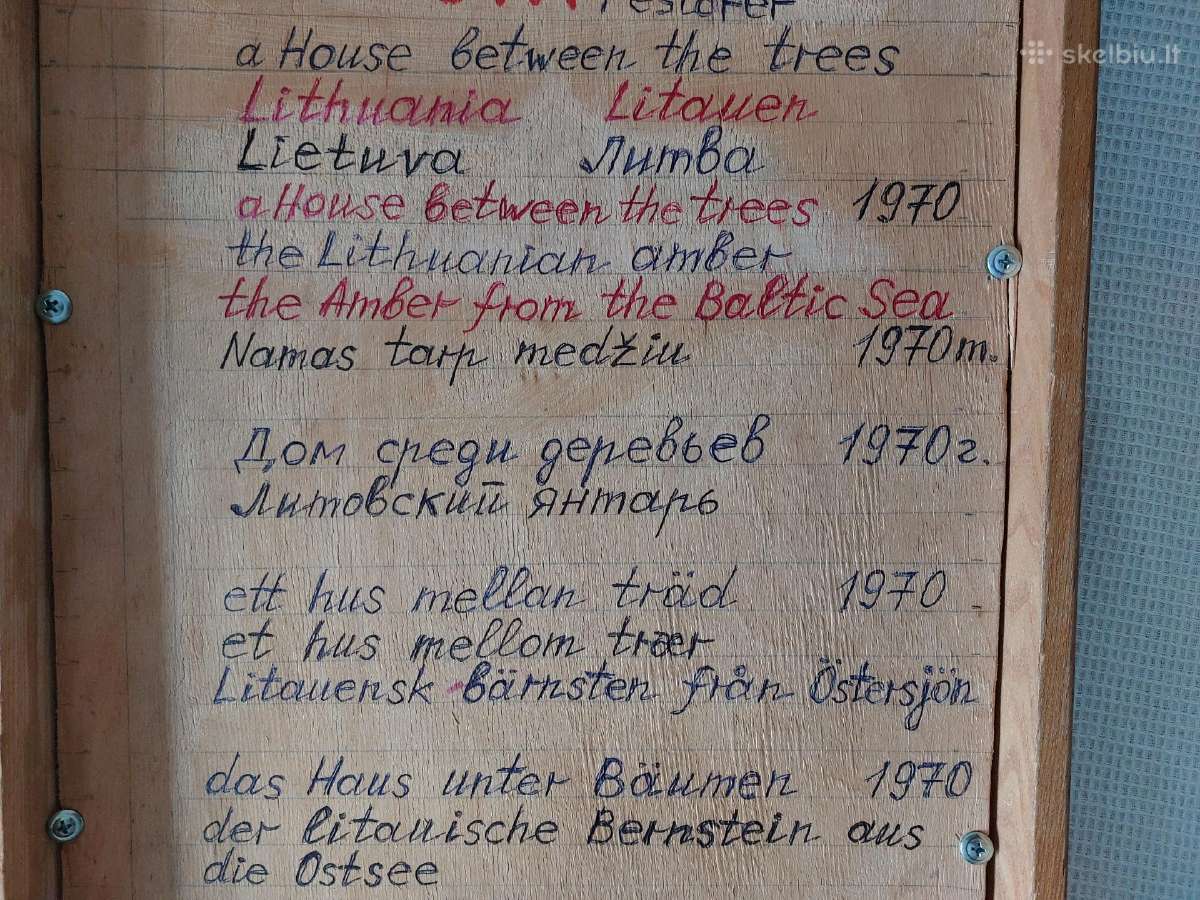 skelbiu.lt
a House between the trees
Lithuania Litauen
Lietuva Литва
a House between the trees 1970
the Lithuanian amber
the Amber from the Baltic Sea
Namas tarp medžiu 1970m.
Дом среди деревьев 1970г.
Литовский янтарь
ett hus mellan träd 1970
et hus mellom trær
Litauensk bärnsten från Östersjön
das Haus unter Bäumen 1970
der litauische Bernstein aus
die Ostsee